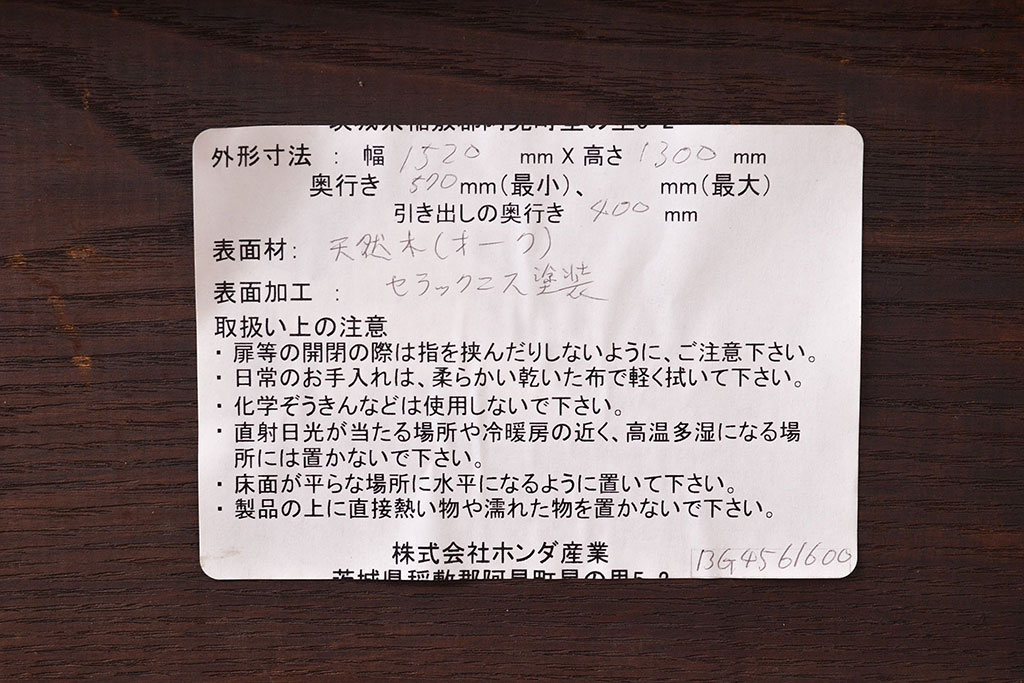 外形寸法 : 幅 1520 mm X 高さ 1300 mm
奥行き 570mm(最小)、 mm(最大)
引き出しの奥行き 400 mm
表面材: 天然木(オーク)
表面加工 : セラックニス塗装
取扱い上の注意
・ 扉等の開閉の際は指を挟んだりしないように、ご注意下さい。
・ 日常のお手入れは、柔らかい乾いた布で軽く拭いて下さい。
・ 化学ぞうきんなどは使用しないで下さい。
・ 直射日光が当たる場所や冷暖房の近く、高温多湿になる場
所には置かないで下さい。
・ 床面が平らな場所に水平になるように置いて下さい。
・ 製品の上に直接熱い物や濡れた物を置かないで下さい。
株式会社ホンダ産業
BG4561600